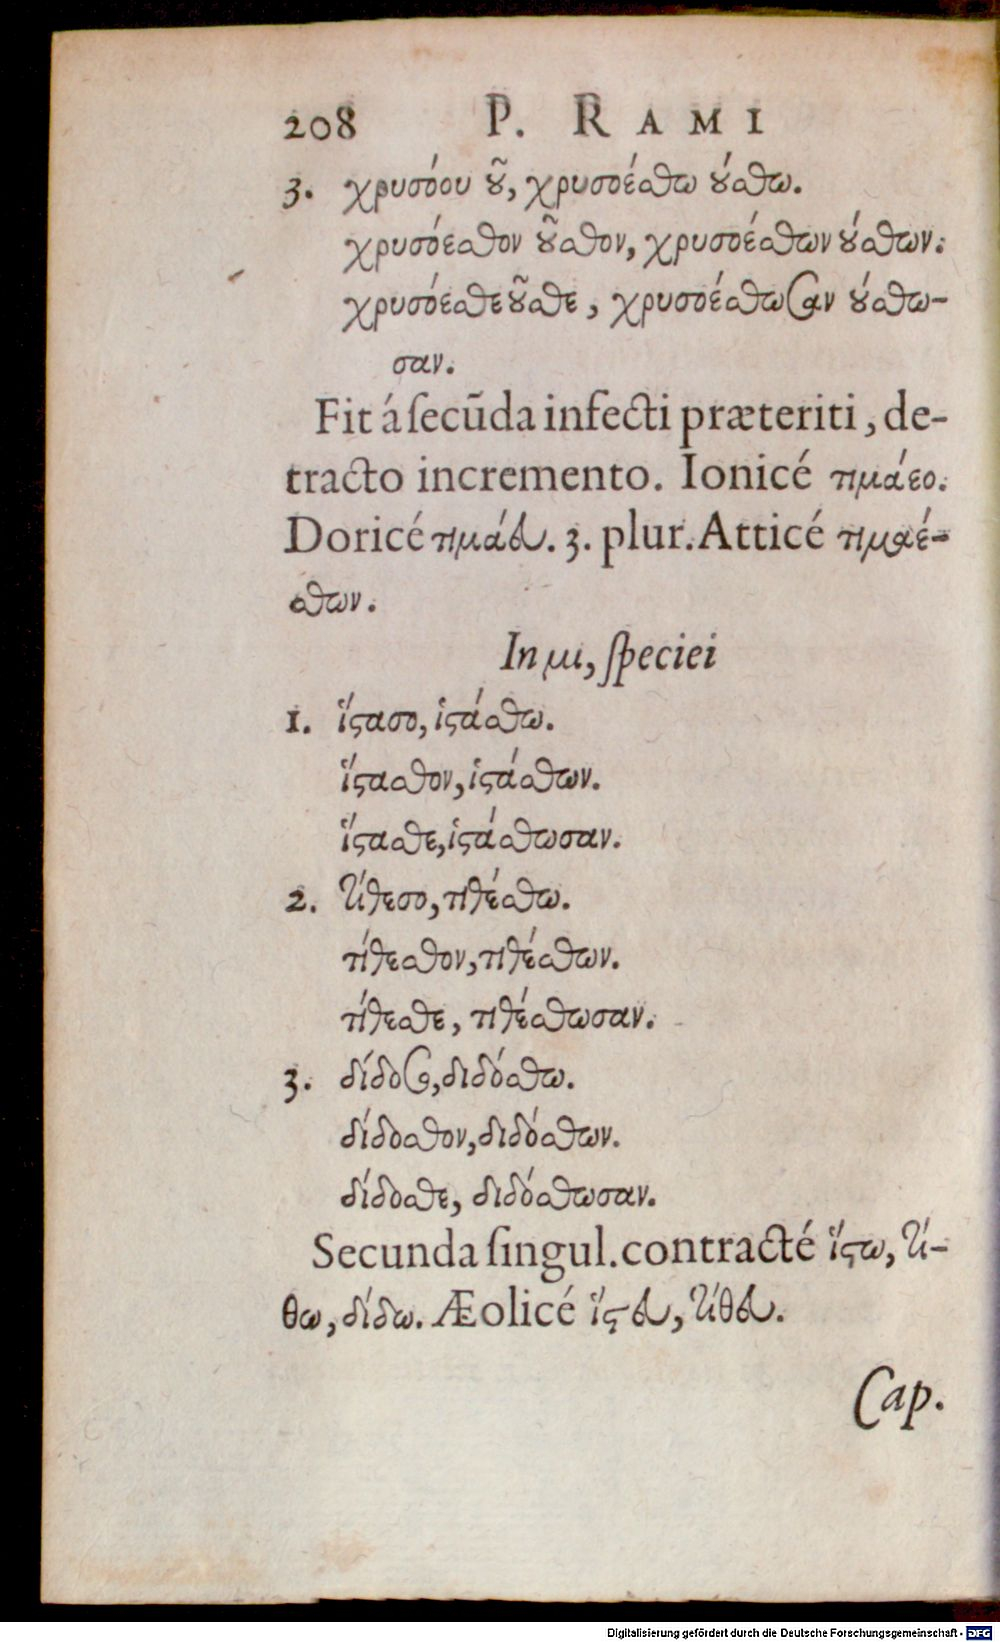 208 P. RAMI
3. χρυσόου ȣ͂, χρυσοέσθω ȣ́σθω.
χρυσόεσθον ȣ͂σθον, χρυσοέσθων ȣ́σθων.
χρυσόεσθε ȣ͂σθε, χρυσοέσθωσαν ȣ́σθω-
σαν.
Fit á ſecūda infecti præteriti, de-
tracto incremento. Ionicé τιμάεο.
Doricé τιμάευ. 3. plur. Atticé τιμαέ-
σθων.
In μι, ſpeciei
1. ἵϛασο, ἱϛάσθω.
ἵϛασθον, ἱϛάσθων.
ἵϛασθε, ἱϛάσθωσαν.
2. τίθεσο, τιθέσθω.
τίθεσθον, τιθέσθων.
τίθεσθε, τιθέσθωσαν.
3. δίδοσο, διδόσθω.
δίδοσθον, διδόσθων.
δίδοσθε, διδόσθωσαν.
Secunda ſingul. contracté ἵϛω, τί-
θω, δίδω. Æolicé ἵϛευ, τίθευ.
Cap.
Digitalisierung gefördert durch die Deutsche Forschungsgemeinschaft - DFG